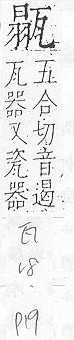 五合切音遏
瓦器又瓷器
瓦
18.
P19